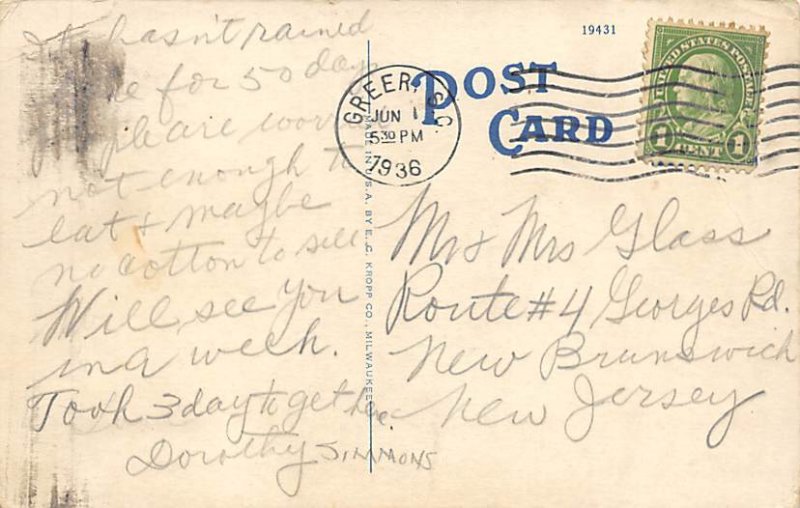 It hasn't rained
here for 50 days
People are worried
not enough to
eat & maybe
no cotton to sell
Will see you
in a week.
Took 3 day to get here
Dorothy SIMMONS
19431
POST
CARD
GREER, S.C.
JUN 1
5 30 PM
1936
UNITED STATES POSTAGE
1 CENT 1
MADE IN U.S.A. BY E. C. KROPP CO., MILWAUKEE
Mr & Mrs Glass
Route #4 Georges Rd.
New Brunswich
New Jersey